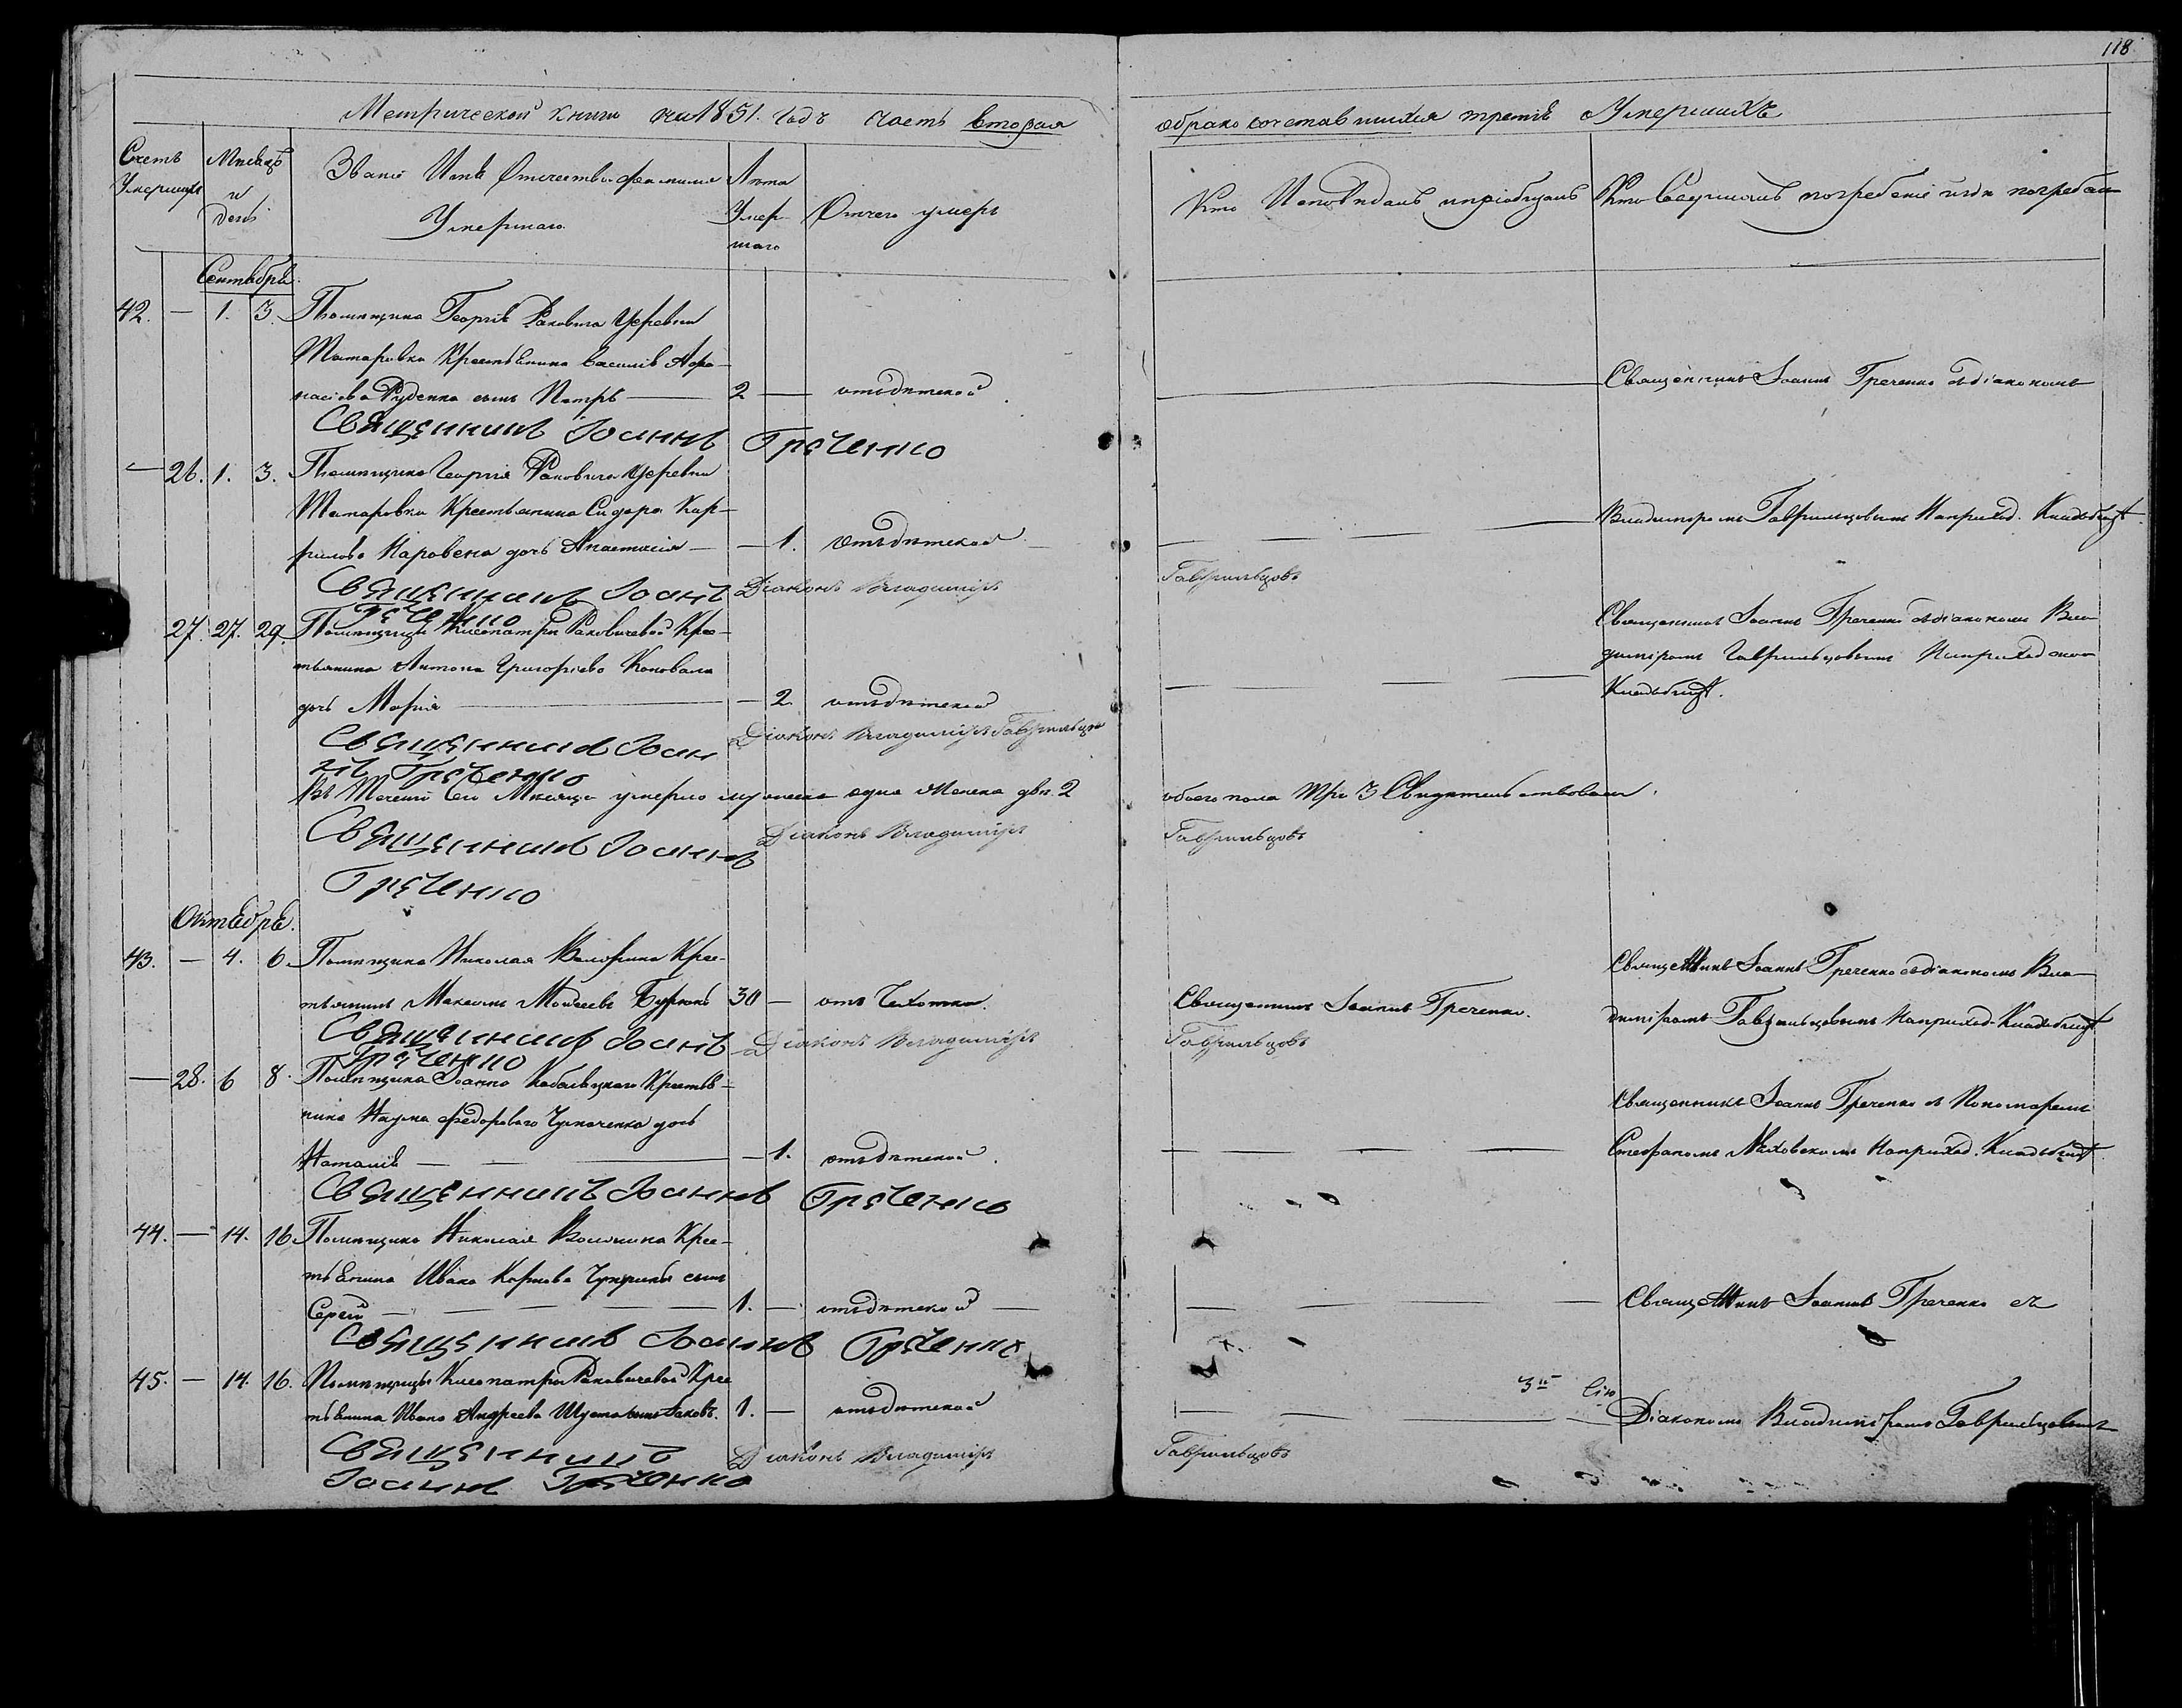 118
Метрической книги на 1851. годъ часть вторая
обрако сочетавшихся третiя о Умершихъ
Счетъ Умершихъ
Мѣсяцъ и день
Званiе Имя Отчество фамилiя Умершаго
Лѣта Умершаго
Отчего умеръ
Кто Исповѣдалъ и прiобщалъ
Кто Совершалъ погребенiе и гдѣ погребен
Сентября
42. — 1. 3. Помѣщика Георгiя Раковича деревни
Татаровки Крестьянина Василiя Афа-
насiева Руденка сынъ Петръ — 2 — отъ дѣтской
Священникъ Iоаннъ Греченко съ дiакономъ
Священникъ Iоаннъ Греченко
— 26. 1. 3. Помѣщика Георгiя Раковича деревни
Татаровки Крестьянина Сидора Кир-
рилова дочь Анастасiя — — 1. отъ дѣтской
Владимiромъ Гаврильцовымъ На приход. Кладбищѣ.
Священникъ Iоаннъ Дiаконъ Владимiръ Гаврильцовъ
Греченко
27. 27. 29. Помѣщицы Клеопатры Раковичевой Крес-
тьянина Антона Григорiева Коновала
дочь Марiя — — 2. отъ дѣтской
Священникъ Iоаннъ Греченко съ дiакономъ Вла-
димiромъ Гаврильцовымъ На приходском
Кладбищѣ.
Священникъ Iоан Дiаконъ Владимiръ Гаврильцовъ
нъ Греченко
Въ Теченiи Сего Мѣсяца умерло мужеска одна Женска двѣ 2 обоего пола три 3 Свидѣтельствовали.
Священникъ Iоаннъ Дiаконъ Владимiръ Гаврильцовъ
Греченко
Октября.
43. — 4. 6. Помѣщика Николая Крес-
тьянинъ Максимъ Моѵсеевъ 30 — отъ Чахотки. Священникъ Iоаннъ Греченко.
Священникъ Iоаннъ Греченко съ дiакономъ Вла-
димiромъ Гаврильцовымъ На приход. Кладбищѣ
Священникъ Iоаннъ Дiаконъ Владимiръ Гаврильцовъ
Греченко
— 28. 6 8. Помѣщика Iоанна Крестья-
нина Наума Федорова дочь
Наталiя — — 1. отъ дѣтской.
Священникъ Iоаннъ Греченко съ Пономаремъ
Стефаномъ На приход. Кладбищѣ
Священникъ Iоаннъ Греченко
44. — 14. 16. Помѣщика Николая Крес-
тьянина Ивана Карпова сынъ
Сергiй — 1. — отъ дѣтской —
Священникъ Iоаннъ Греченко съ
Священникъ Iоаннъ Греченко
45. — 14. 16. Помѣщицы Клеопатры Раковичевой Крес
тьянина Ивана Андреева сынъ Iаковъ. 1. — отъ дѣтской
Дiакономъ Владимiромъ Гаврильцовымъ
Священникъ Дiаконъ Владимiръ Гаврильцовъ
Iоаннъ Греченко